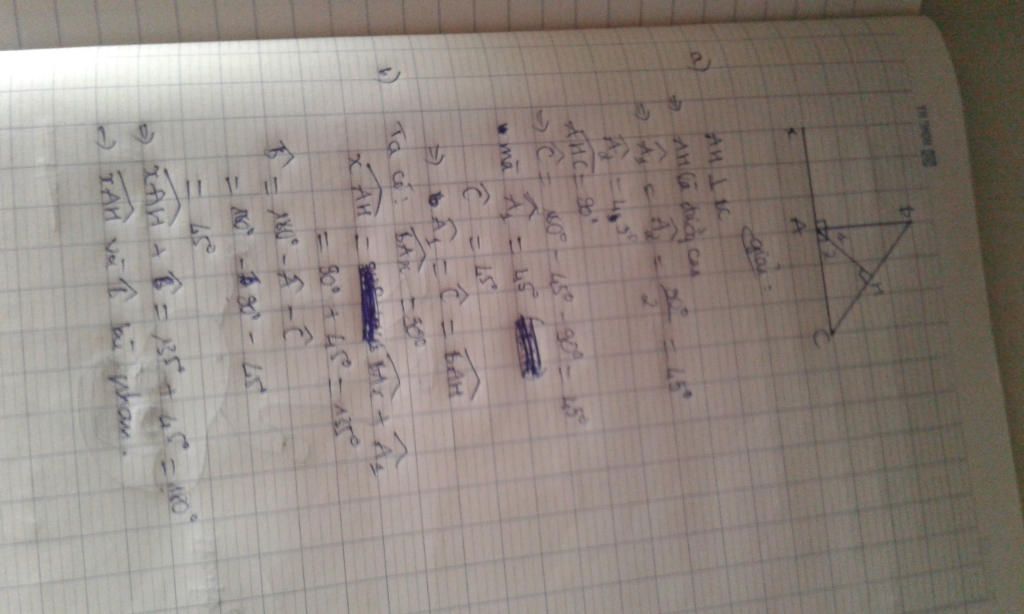 B
H
x
A
1
2
C
Giải:
a)
AH ⊥ BC
⇒ AH là đường cao
⇒ Â₁ = Â₂ = 90°/2 = 45°
Â₂ = 45°
AHC = 90°
⇒ Ĉ = 180° - 45° - 90° = 45°
mà Â₁ = 45°
Ĉ = 45°
⇒ Â₁ = Ĉ = BAH
b)
Ta có: BAx = 90°
xAH = BAx + Â₁
= 90° + 45° = 135°
B̂ = 180° - Â - Ĉ
= 180° - 90° - 45°
= 45°
⇒ xAH + B̂ = 135° + 45° = 180°
⇒ xAH và B̂ bù nhau.